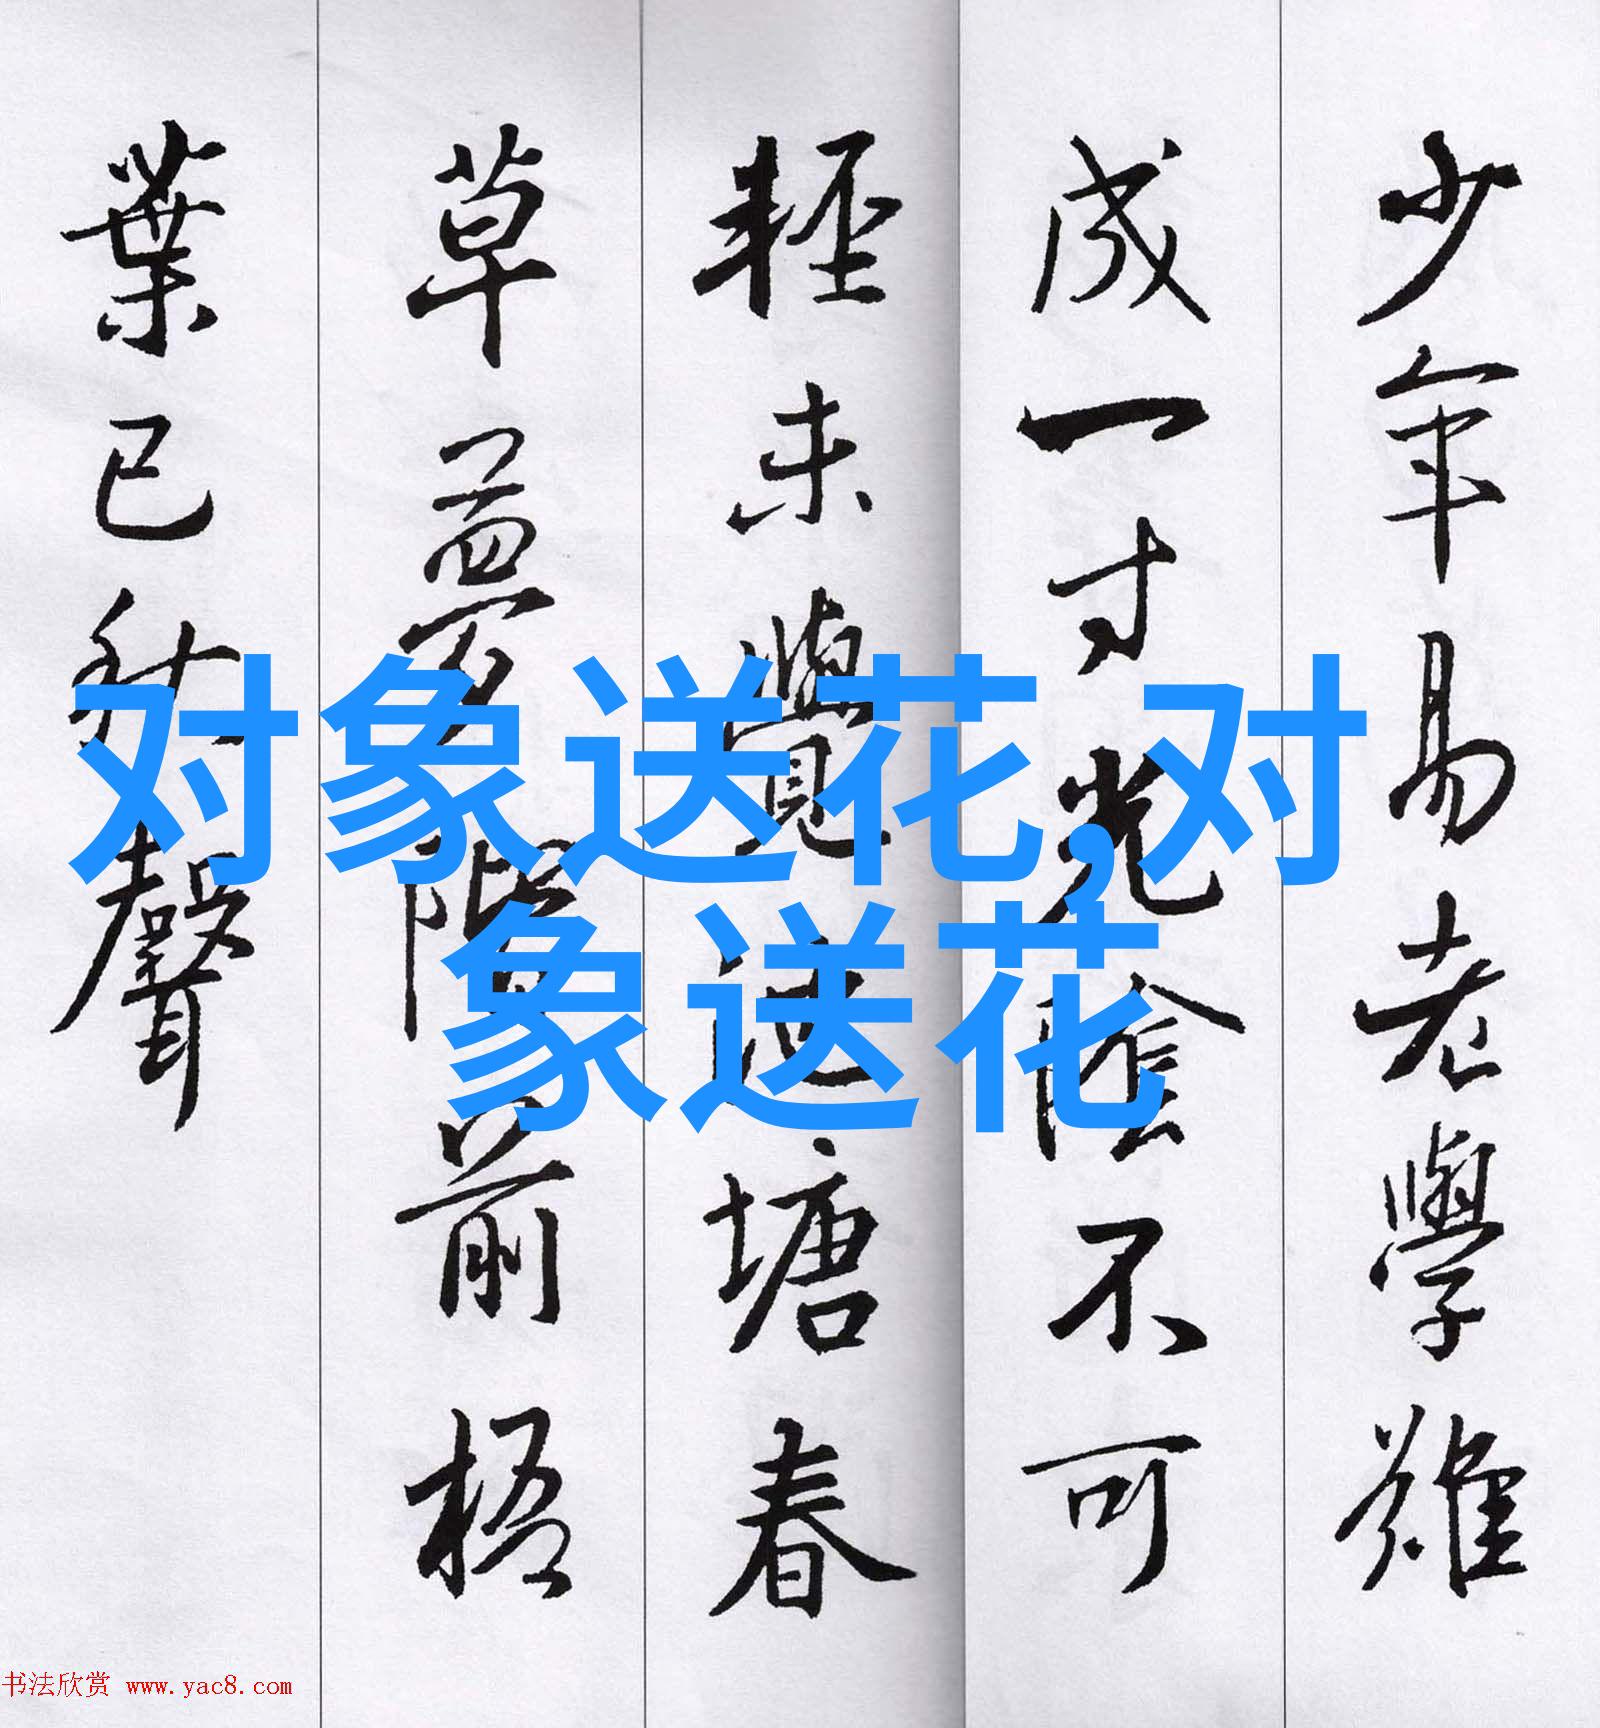 少年易老學難
成一寸光陰不可
輕未覺池塘春
草夢階前梧
葉已秋聲
对象送花,对
象送花
书法欣赏 www.yac8.com